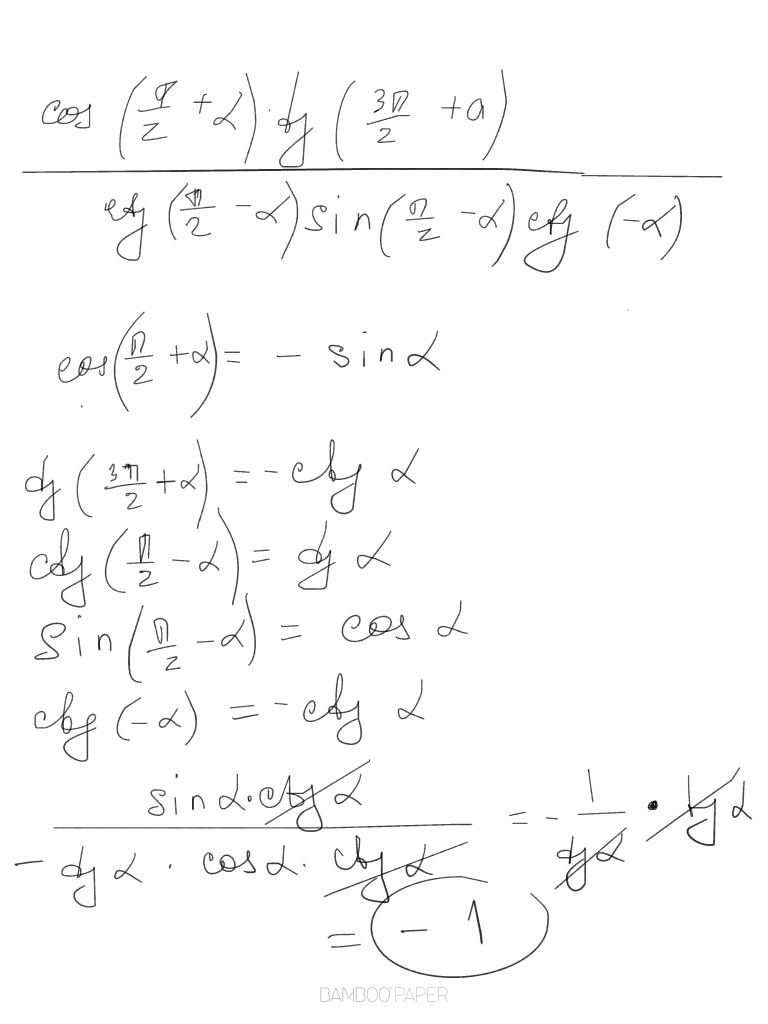 cos (π/2 + α) · tg (3π/2 + a)
ctg (π/2 - α) sin (π/2 - α) ctg (-α)
cos (π/2 + α) = - sin α
tg (3π/2 + α) = - ctg α
ctg (π/2 - α) = tg α
sin (π/2 - α) = cos α
ctg (-α) = - ctg α
sin α · ctg α
- tg α · cos α · ctg α
= - 1/tg α · tg α
= - 1
BAMBOO PAPER